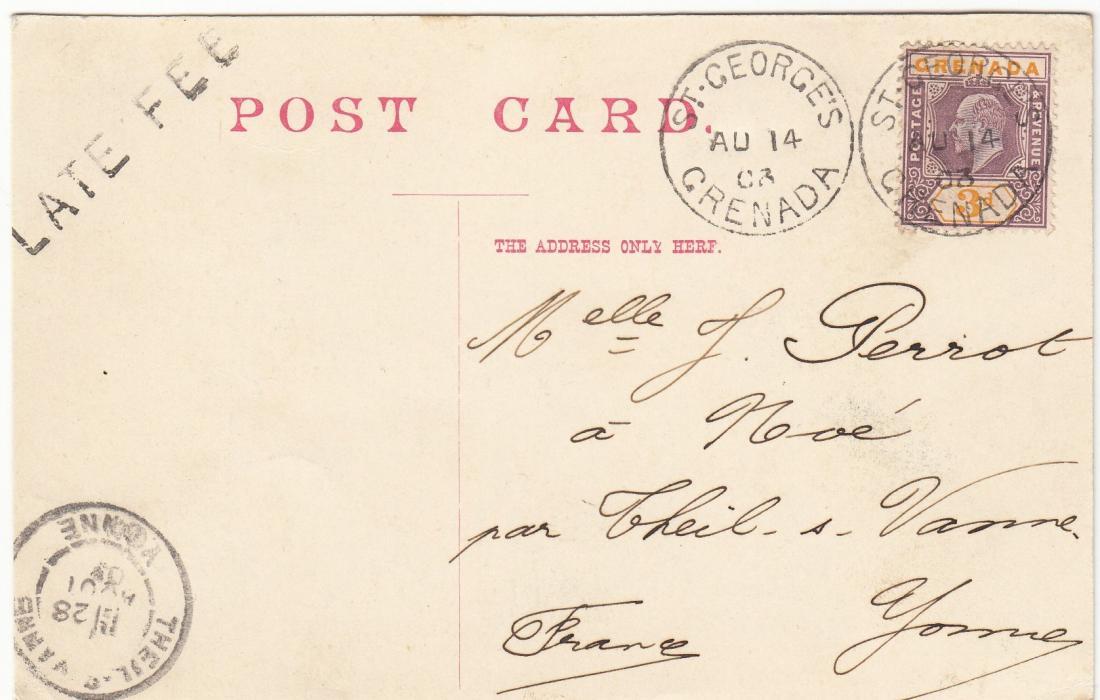 LATE FEE
POST CARD.
ST. GEORGE'S
AU 14
03
GRENADA
GRENADA
POSTAGE
& REVENUE
3d
ST. GEORGE'S
AU 14
03
GRENADA
THE ADDRESS ONLY HERE.
Melle J. Perrot
à Noé
par Theil-s-Vanne
Yonne
France
THEIL-S-VANNE
28
AOUT
03
YONNE